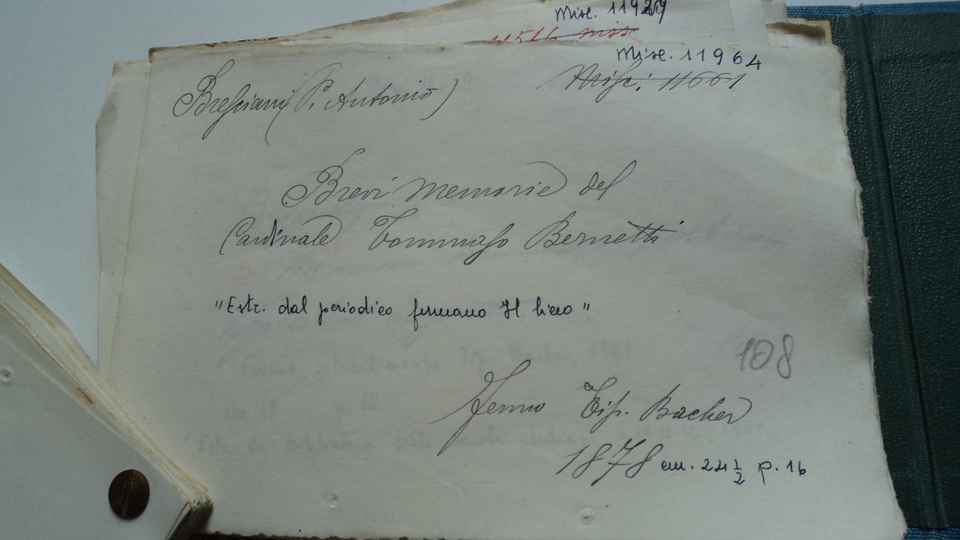 Misc. 11929
Misc. 11964
Misc. 11661
Bresciani (P. Antonio)
Brevi memorie del
Cardinale Tommaso Bernetti
"Estr. dal periodico fermano Il
108
Fermo Tip. Bacher
1878 cm. 24 1/2 p. 16